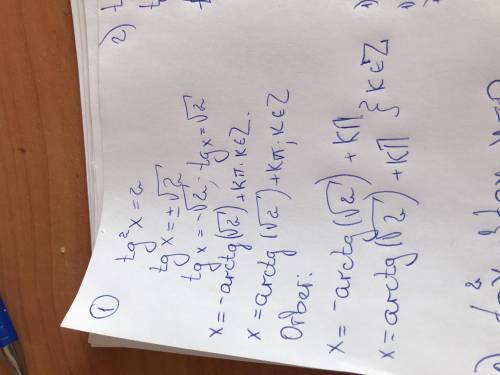 1
tg²x=2
tg x=±√2
tg x=-√2; tg x=√2
x=-arctg(√2)+kπ; k∈Z.
x=arctg(√2)+kπ, k∈Z
Ответ:
x=-arctg(√2)+kπ
x=arctg(√2)+kπ } k∈Z
2)